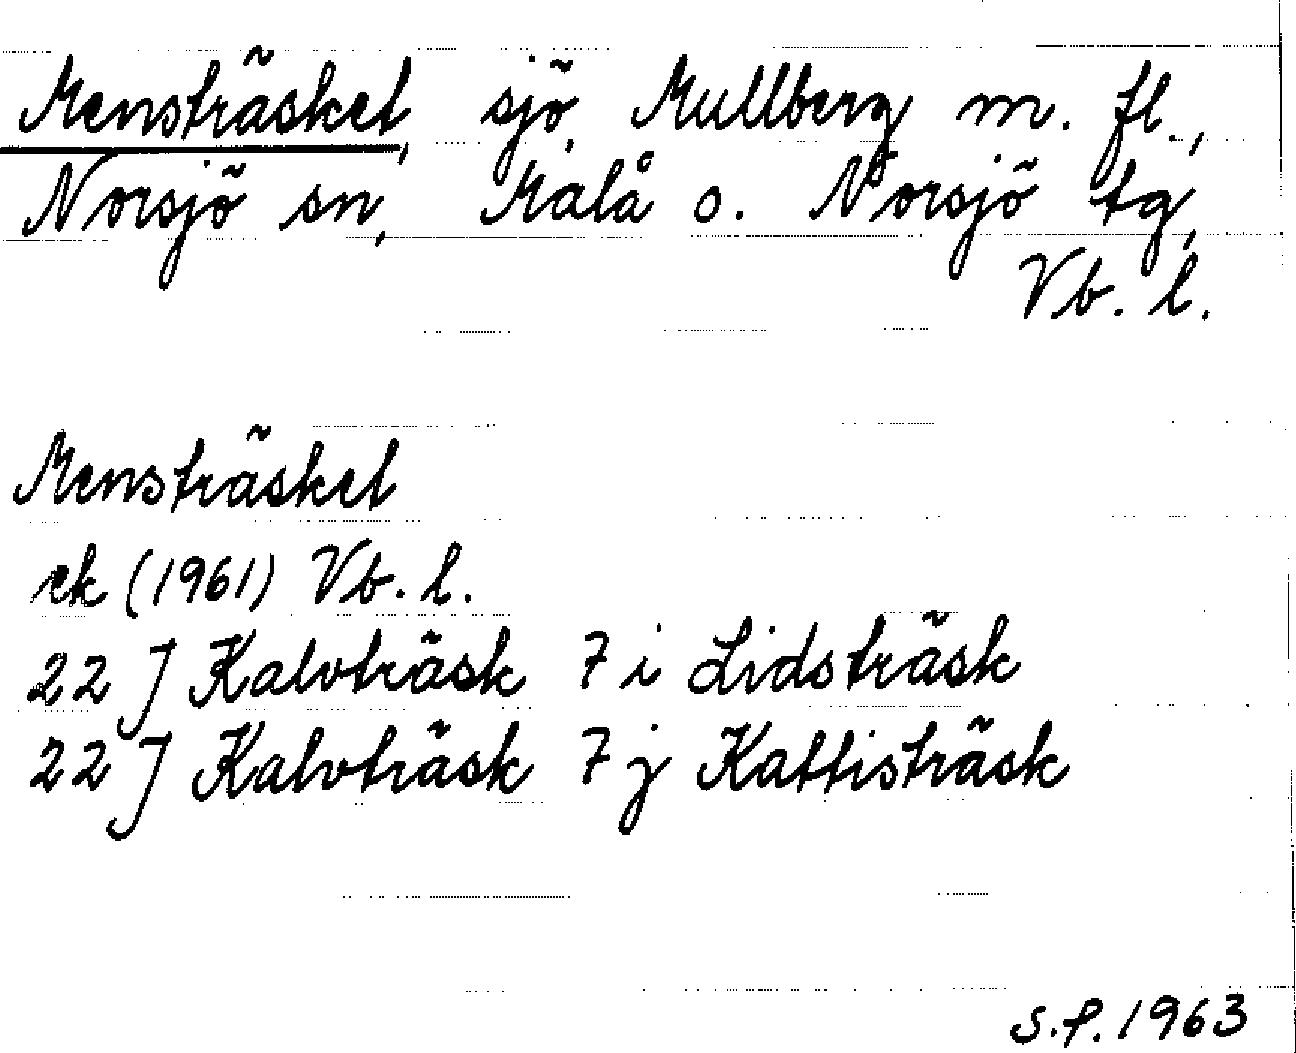 Mensträsket, sjö, Mullberg m. fl.,
Norsjö sn, Malå o. Norsjö tg,
Vb. l.
Mensträsket
ek (1961) Vb. l.
22 J Kalvträsk 7 i Lidsträsk
22 J Kalvträsk 7 j Kattisträsk
S.P. 1963